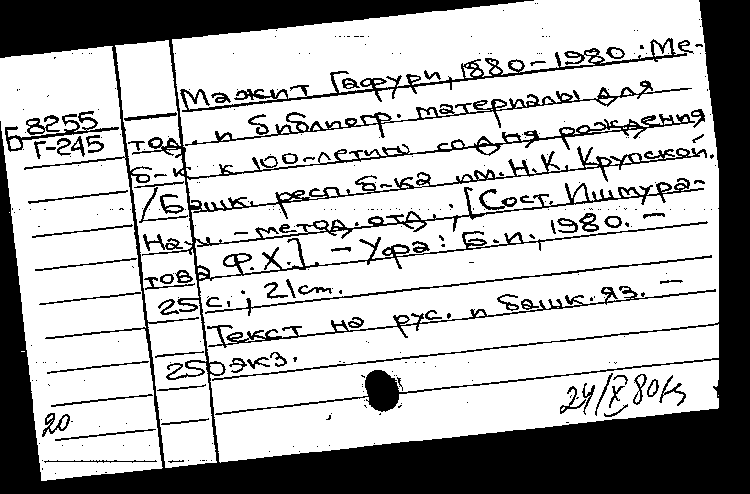 Мажит Гафури, 1880-1980 : Ме-
Б 8255
Г-245
тод. и библиогр. материалы для
б-к к 100-летию со дня рождения
/Башк. респ. б-ка им. Н.К. Крупской.
Науч.-метод. отд. ; [Сост. Ишмура-
това Ф.Х.]. - Уфа : Б.и., 1980. -
25 с. ; 21 см.
Текст на рус. и башк. яз. -
250 экз.
20
24/X 80